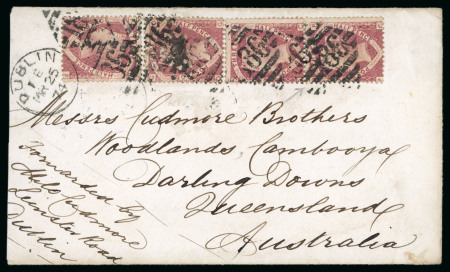 DUBLIN
MY 25
74
186
Messrs Cudmore Brothers
Woodlands Cambooya
Darling Downs
Queensland
Australia
Forwarded by
Cudmore
Leinster Road
Dublin